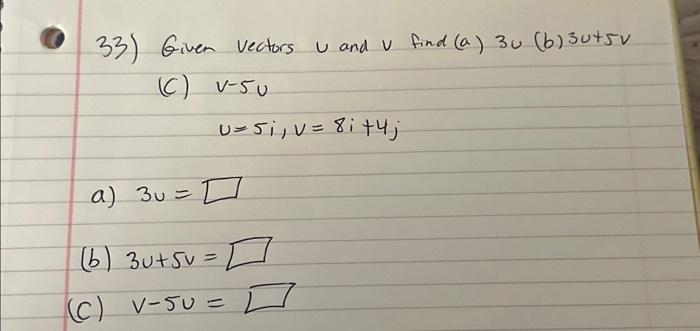 33) Given vectors u and v find (a) 3u (b) 3u+5v
(c) v-5u
u=5i, v=8i+4j
a) 3u=
(b) 3u+5v=
(c) v-5u=